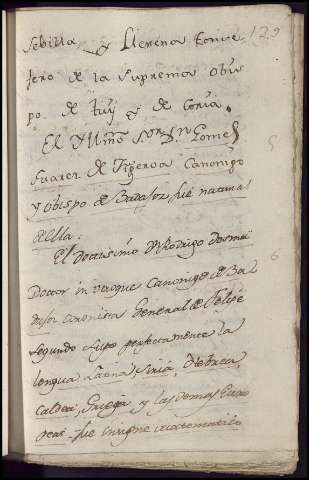 129
Sebilla, y Llerena Conse
jero de la Suprema Obis
po de tuy y de Coria.
El Yllmo Sor Dn Gomes
Suarez de Figeroa Canonigo
y Obispo de Badajoz fue natural
de ella.
El Doctissimo Dn Rodrigo Dosma
Doctor in utroque Canonigo de Ba
dajoz Coronista General de Felipe
Segundo supo perfectamente la
lengua Latina Siria, Hebrea
Caldea, Griega y las demas Euro
peas fue insigne matematico